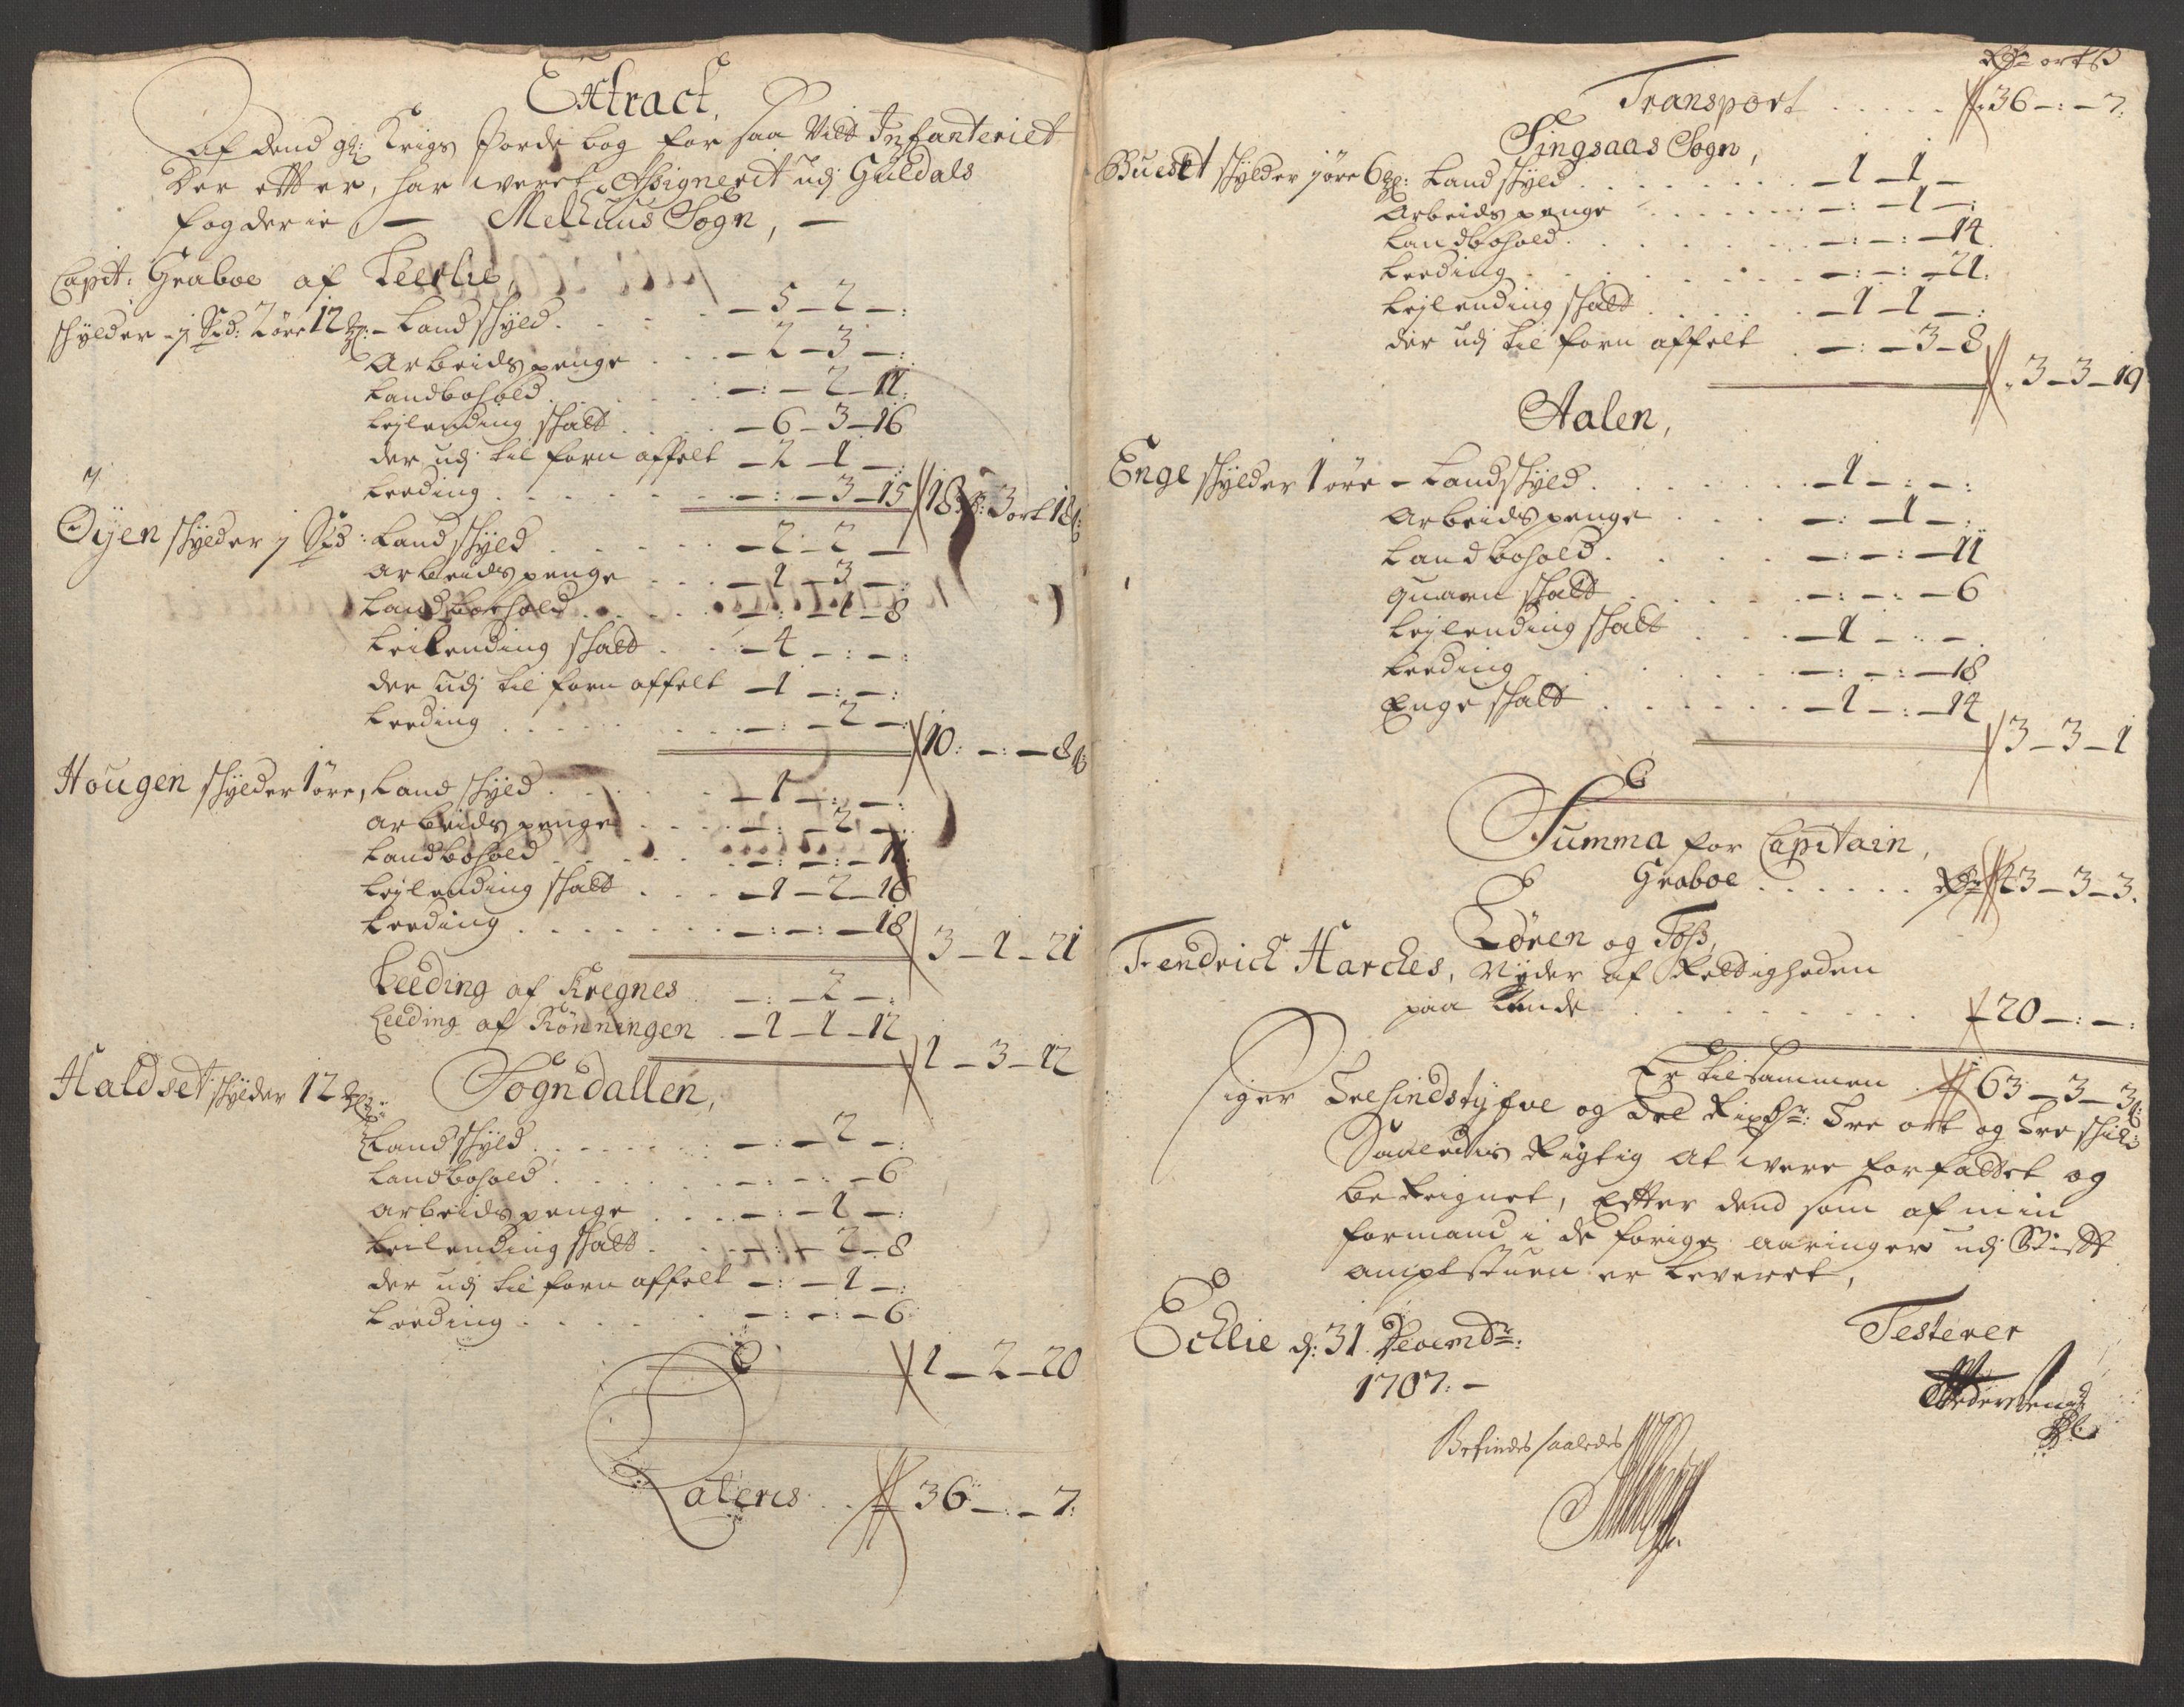 Extract,
Af dend gl: Krigs Jorde bog for saa Vitt Infanteriet
der efter, har weret Assignerit udj Guldals
fogderie — Melhuus Sogn, —
Capit: Graboe af Leerlie,
schylder - j Spd: 2 øre 12 - Landschyld . . . . — 5 — 2 — :
Arbeidspenge . . . — 2 — 3 — :
Landbohold . . . . — : — 2 — 11 :
Lejlending schatt . . . — 6 — 3 — 16
der udj til forn affelt — 2 — 1 — :
Leeding . . . . . — : — 3 — 15 18 : 3 ort 18 :
Øyen schylder j Spd : Landschyld . . . . — 2 — 2 —
Arbeidspenge . . . — 1 — 3 — :
Landboehold . . . . — : — 1 — 8
Leilending schatt . . — 4 — : — :
der udj til forn affelt — 1 — : — :
Leeding . . . . . — : — 2 — :
10 : — : — 8
Hougen schylder 1 øre, Landschyld . . . . — 1 — : — :
arbeidspenge . . . — : — 2 — :
Landbohold . . . . — : — : — 11
Lejlending schatt . . . — 1 — 2 — 16
Leeding . . . . . — : — : — 18
3 — 1 — 21
Leeding af Kregnes . — : — 2 — :
Leeding af Rønningen . — 1 — 1 — 12
1 — 3 — 12
Haldset schylder 12 : Sogndallen,
Landschyld . . . . . — : — 2 — :
Landbohold . . . . . — : — : — 6
Arbeidspenge . . . . — : — 1 — :
Leilending schatt . . . — : — 2 — 8
der udj til forn affelt — : — 1 — :
Leeding . . . . . — : — : — 6
1 — 2 — 20
Lateris . . 36 — : — 7 :
Rdr ort ß
Transport . . . . . 36 — : — 7 :
Singsaas Sogn,
Buesedt schylder j øre 6 : Landschyld . . . . . — 1 — 1 —
Arbeidspenge . . . . — : — 1 — :
Landbohold . . . . — : — : — 14
Leeding . . . . . — : — : — 21 :
Lejlending schatt . . . . — 1 — 1 — :
der udj til forn affelt . — : — 3 — 8
3 — 3 — 19
Aalen,
Enge schylder 1 øre - Landschyld . . . . . — 1 — : — :
Arbeidspenge . . . — : — 1 — :
Landbohold . . . . — : — : — 11
quarn schatt . . . . — : — : — 6
Lejlending schatt . . . — 1 — : —
Leeding . . . . . — : — : — 18
Enge schatt . . . . . — 1 — : — 14
3 — 3 — 1
Summa for Capitain,
Graboe . . . . . . Rdr 43 — 3 — 3 .
Søren og Foss,
Fendrich Harches, Nyder af Rettigheden
paa Lunde . . . . . . . . 20 — : — :
Er tilsammen . 63 — 3 — 3
Siger Tresindstyfve og Tre Rixdr: Tre ort og Tre schil:
Saaledis Rigtig at were forfattet og
bereignet, Efter dend som af min
formand i de forige aaringer udj Stift
ampstuen er leveret,
Echlie d: 31 Decembr:
1707: —
Testerer
Pedersen
Befindes saaledes